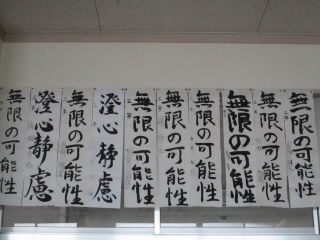 無限の可能性
澄心静慮
無限の可能性
澄心静慮
無限の可能性
無限の可能性
無限の可能性
無限の可能性
無限の可能性
無限の可能性